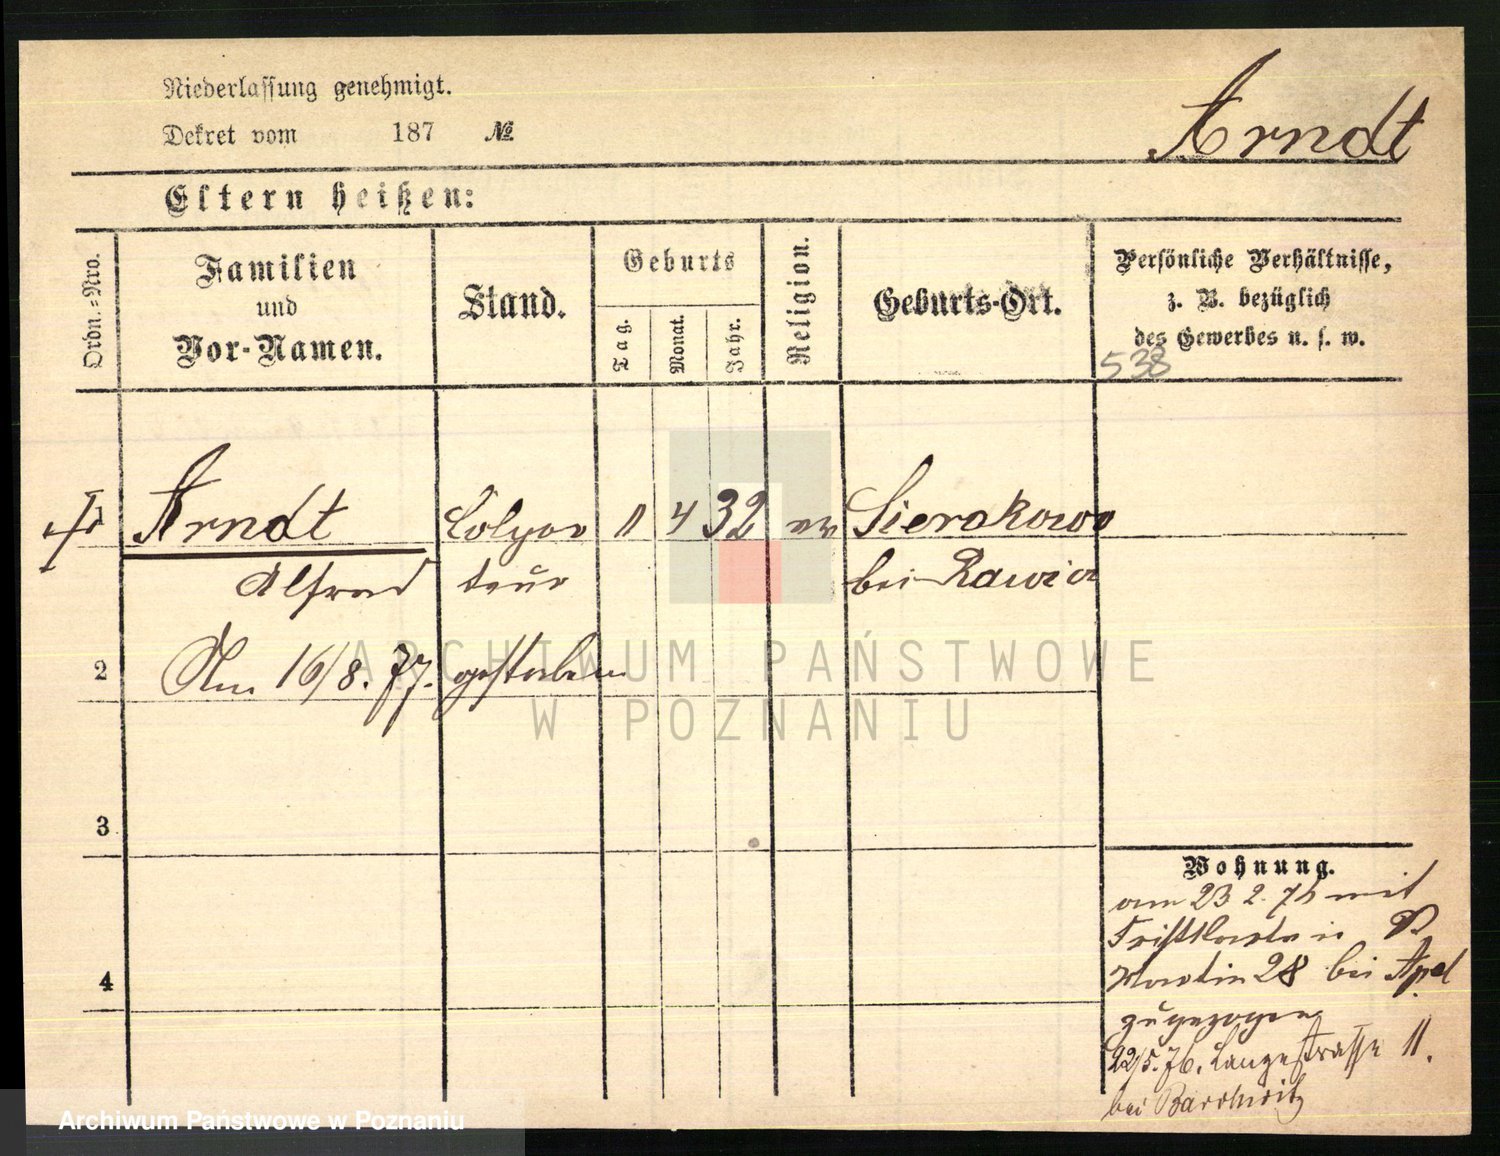 Niederlassung genehmigt.
Dekret vom 187 №
Arndt
Eltern heißen:
Ordn.=Nro.
Familien
und
Vor-Namen.
Stand.
Geburts
Tag.
Monat.
Jahr.
Religion.
Geburts-Ort.
Persönliche Verhältnisse,
z. B. bezüglich
des Gewerbes u. s. w.
538
1 Arndt Colpor 11 4 32 ev Sierakowo
Alfred teur bei Rawicz
2 Am 16/8. 77. gestorben
3
4
Wohnung.
am 23 2. 76 mit
St
Martin 28 bei Apel
zugezogen
22/5. 76. Langestrasse 11.
bei
ARCHIWUM PAŃSTWOWE
W POZNANIU
Archiwum Państwowe w Poznaniu